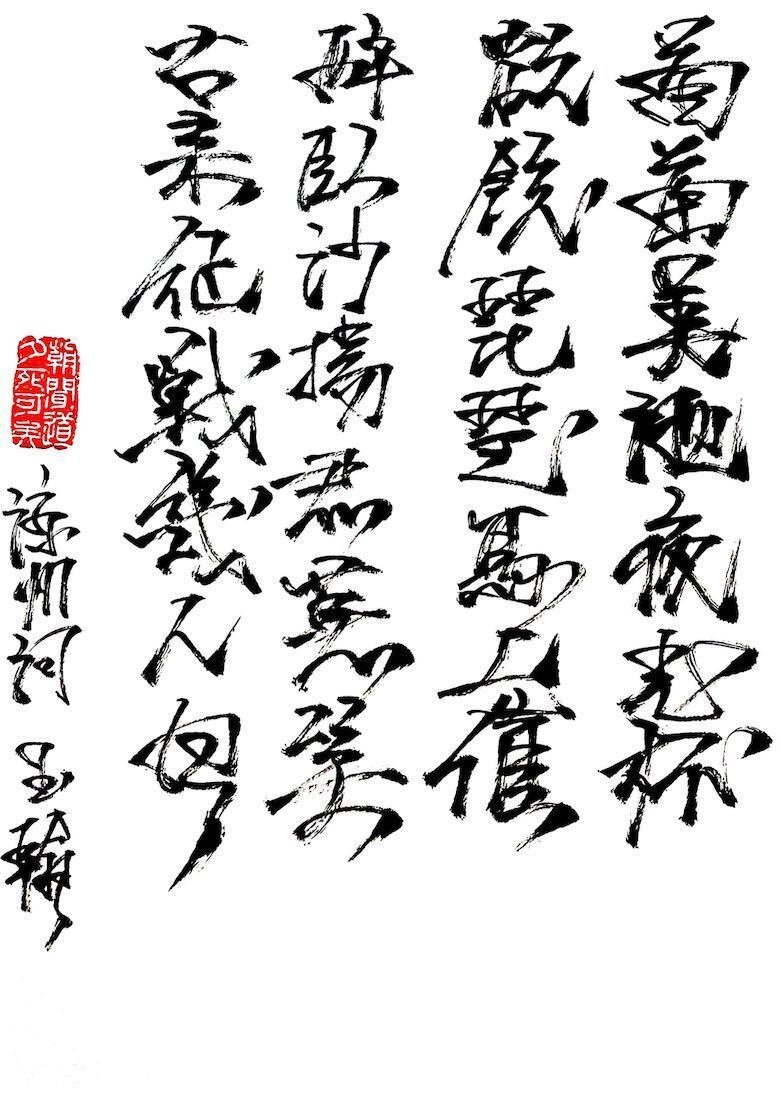 葡萄美酒夜光杯
欲飲琵琶馬上催
醉臥沙場君莫笑
古來征戰幾人回
朝聞道
夕死可矣
涼州詞 王翰